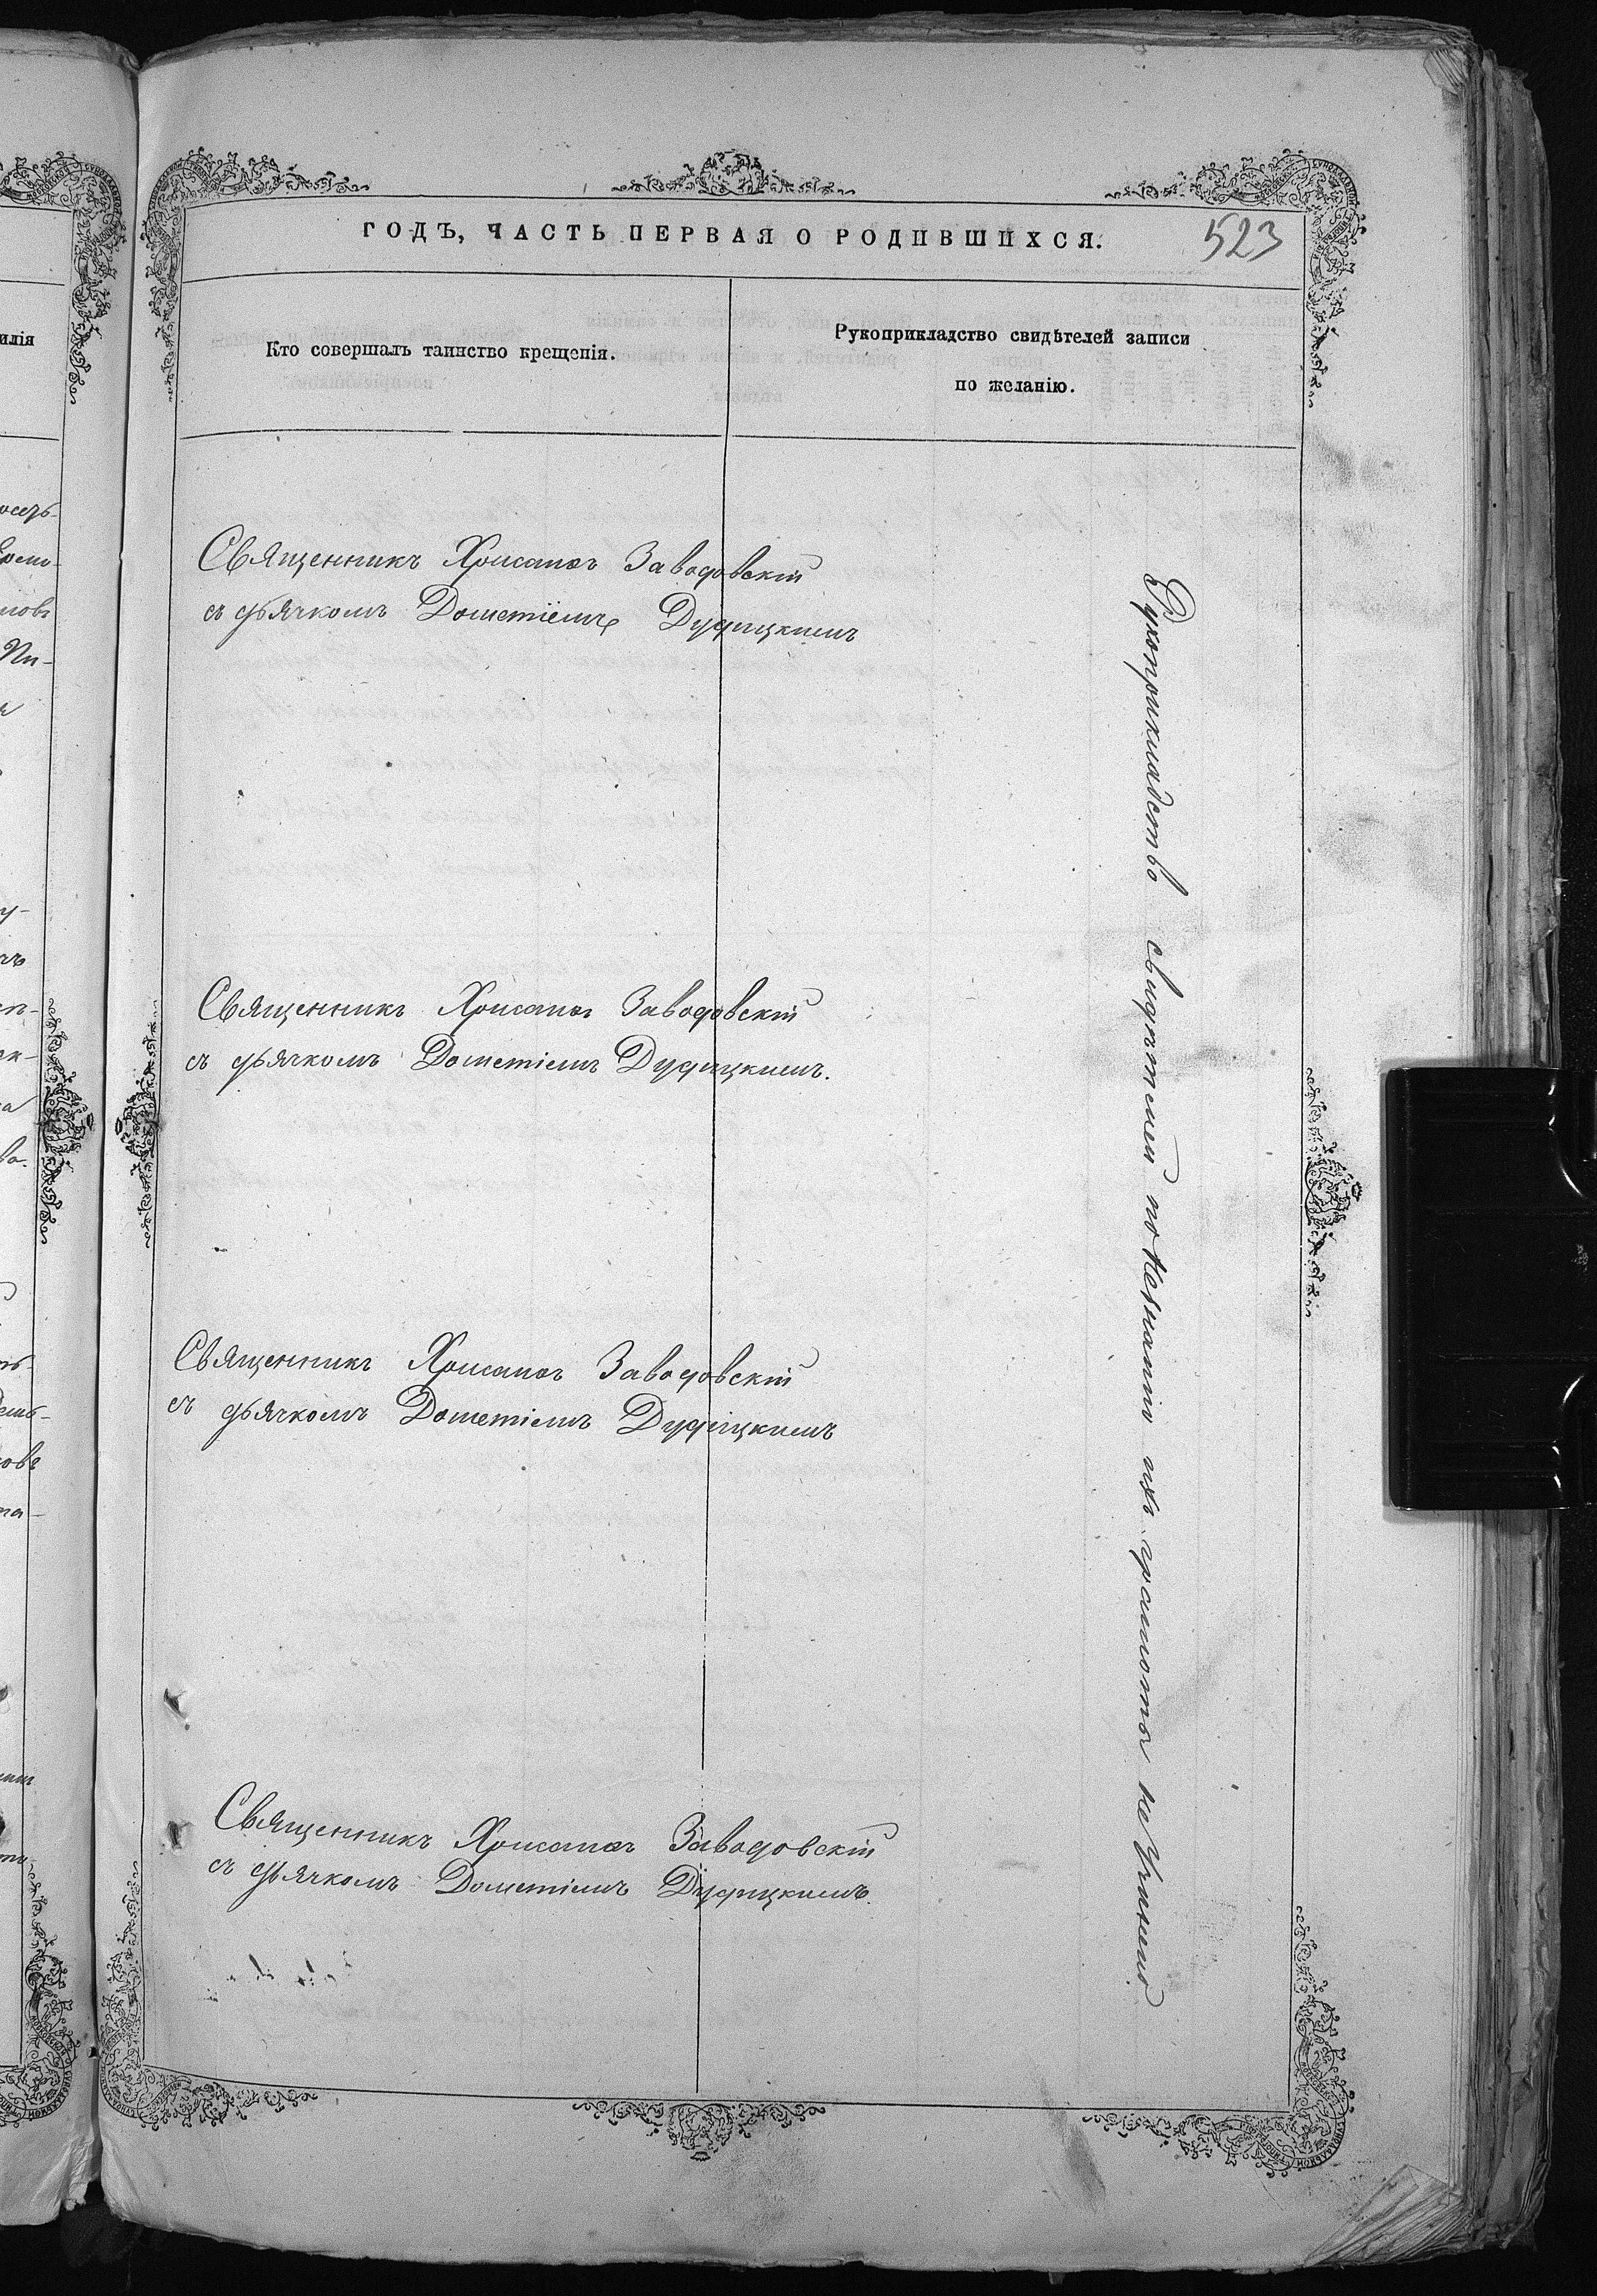 ГОДЪ, ЧАСТЬ ПЕРВАЯ О РОДИВШИХСЯ.
523
Кто совершалъ таинство крещенія.
Рукоприкладство свидѣтелей записи
по желанію.
Священникъ Хрисанѳъ Заводовскій
съ дьячкомъ Дометіемъ Дудицкимъ
Священникъ Хрисанѳъ Заводовскій
съ дьячкомъ Дометіемъ Дудицкимъ.
Священникъ Хрисанѳъ Заводовскій
съ дьячкомъ Дометіемъ Дудицкимъ
Священникъ Хрисанѳъ Заводовскій
съ дьячкомъ Дометіемъ Дудицкимъ.
Рукоприкладство свидѣтелей по незнанію ихъ грамоты не учинено
илія